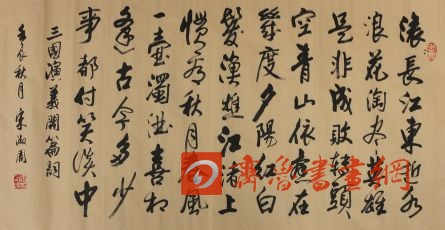 滚長江東逝水
浪花淘尽英雄
是非成敗轉頭
空青山依舊在
幾度夕陽紅白
髮漁樵江渚上
慣看秋月春風
一壺濁酒喜相
逢古今多少
事都付笑談中
三國演義開篇詞
壬辰秋月 宋淑
齊魯書畫網